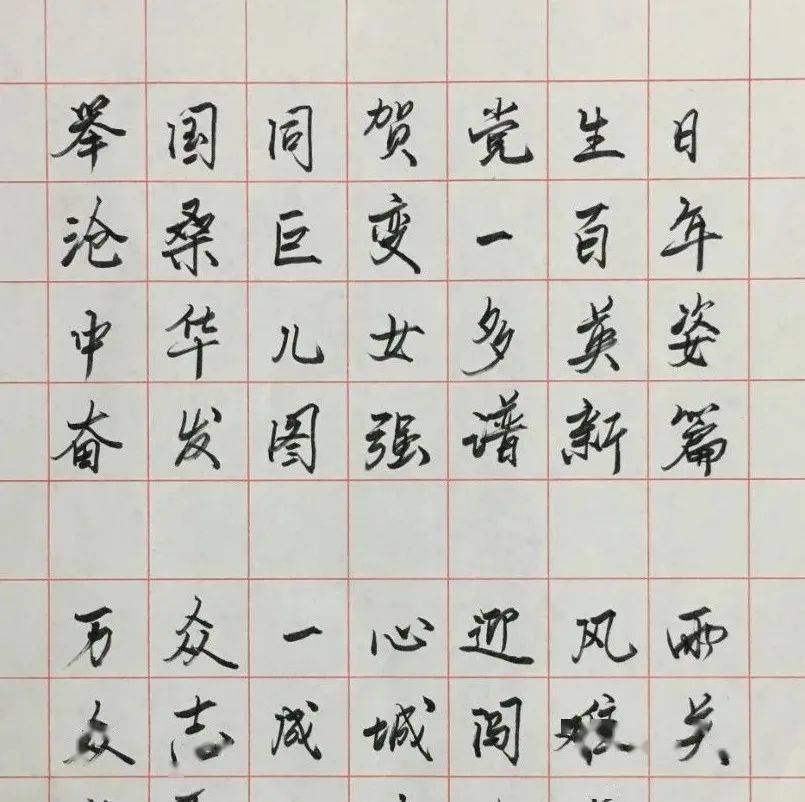 举国同贺党生日
沧桑巨变一百年
中华儿女多英姿
奋发图强谱新篇
万众一心迎风雨
众志成城闯难关